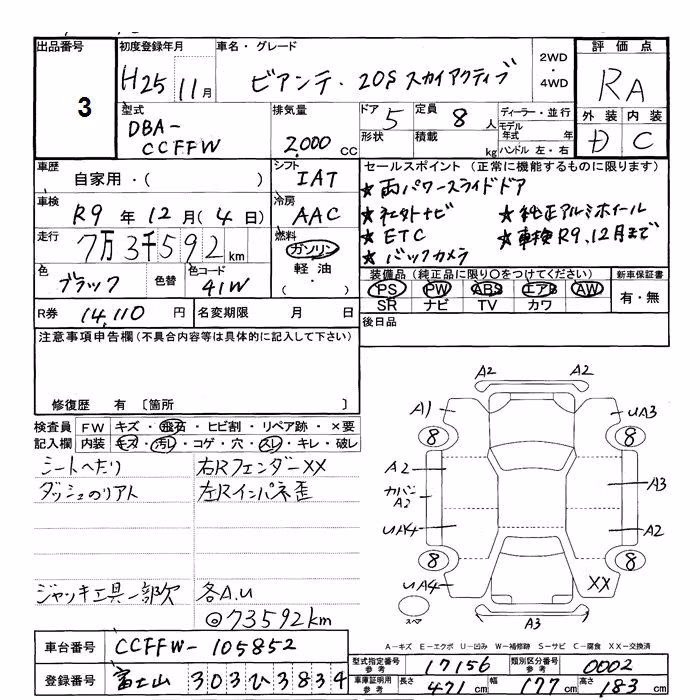 出品番号 3
初度登録年月 H25 11月
車名・グレード ビアンテ・20S スカイアクティブ
2WD・4WD
評価点 RA
外装 内装
D C
型式 DBA-CCFFW
排気量 2,000 CC
ドア 5 定員 8人
形状 積載 kg
ディーラー・並行
モデル年式 年
ハンドル 左・右
車歴 自家用・( )
シフト IAT
車検 R9年12月(4日)
冷房 AAC
走行 7万3千592km
燃料 ガソリン
軽油
・( )
色 ブラック 色替
色コード 41W
R券 14,110円
名変期限 月 日
セールスポイント(正常に機能するものに限ります)
★両パワースライドドア
★社外ナビ ★純正アルミホイール
★ETC ★車検R9.12月まで
★バックカメラ
装備品(純正品に限り○をつけてください)
PS PW ABS エアB AW
SR ナビ TV カワ
新車保証書
有・無
後日品
注意事項申告欄(不具合内容等は具体的に記入して下さい)
修復歴 有 〔箇所 〕
検査員 FW キズ・飛石・ヒビ割・リペア跡・×要
記入欄 内装 キズ・汚レ・コゲ・穴・スレ・キレ・破レ
シートへたり 右Rフェンダーxx
ダッシュのリアト 左Rインパネ歪
ジャッキ工具一部欠 各A.U
◎73592km
A2 A2
A1 UA3
8 8
A2 A3
カバンA2
UA4 A2
8 8
UA4 XX
スペア A3
A-キズ E-エクボ U-凹み W-補修跡 S-サビ C-腐食 XX-交換済
車台番号 CCFFW-105852
登録番号 富士山 303 ひ 3834
型式指定番号 参考 17156
類別区分番号 参考 0002
車庫証明用 参考 長さ 471cm 幅 177cm 高さ 183cm